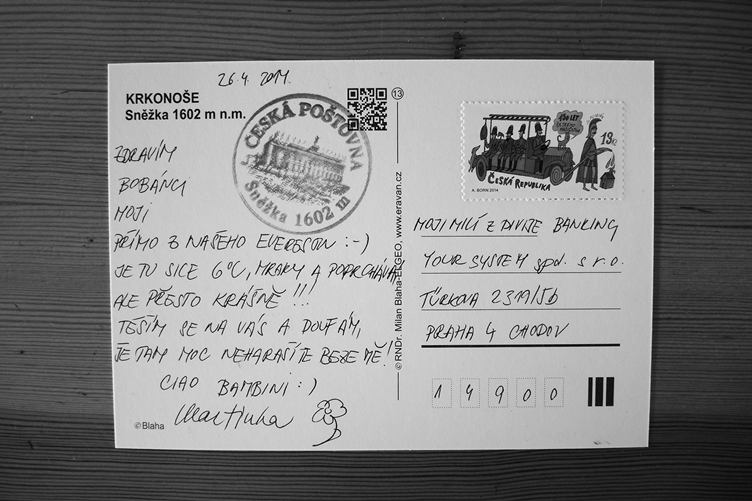 26.4. 2014.
KRKONOŠE
Sněžka 1602 m n.m.
ČESKÁ POŠTOVNA
Sněžka 1602 m
13
ZDRAVÍM
BOBÁNCI
MOJI
PŘÍMO Z NAŠEHO EVERESTU :-)
JE TU SICE 6°C, MRAKY A POPRCHÁVÁ,
ALE PŘESTO KRÁSNĚ !!!
TEŠÍM SE NA VÁS A DOUFÁM,
ŽE TAM MOC NEHARAŠÍTE BEZE MĚ!
CIAO BAMBINI :)
Martinka
©Blaha
©RNDr. Milan Blaha-ELGEO, www.eravan.cz
150 LET
19 Kč
ČESKÁ REPUBLIKA
A. BORN 2014
MOJI MILÍ Z DIVIZE BANKING
YOUR SYSTEM spol. s r.o.
TÜRKOVA 2319/5b
PRAHA 4 CHODOV
1 4 9 0 0